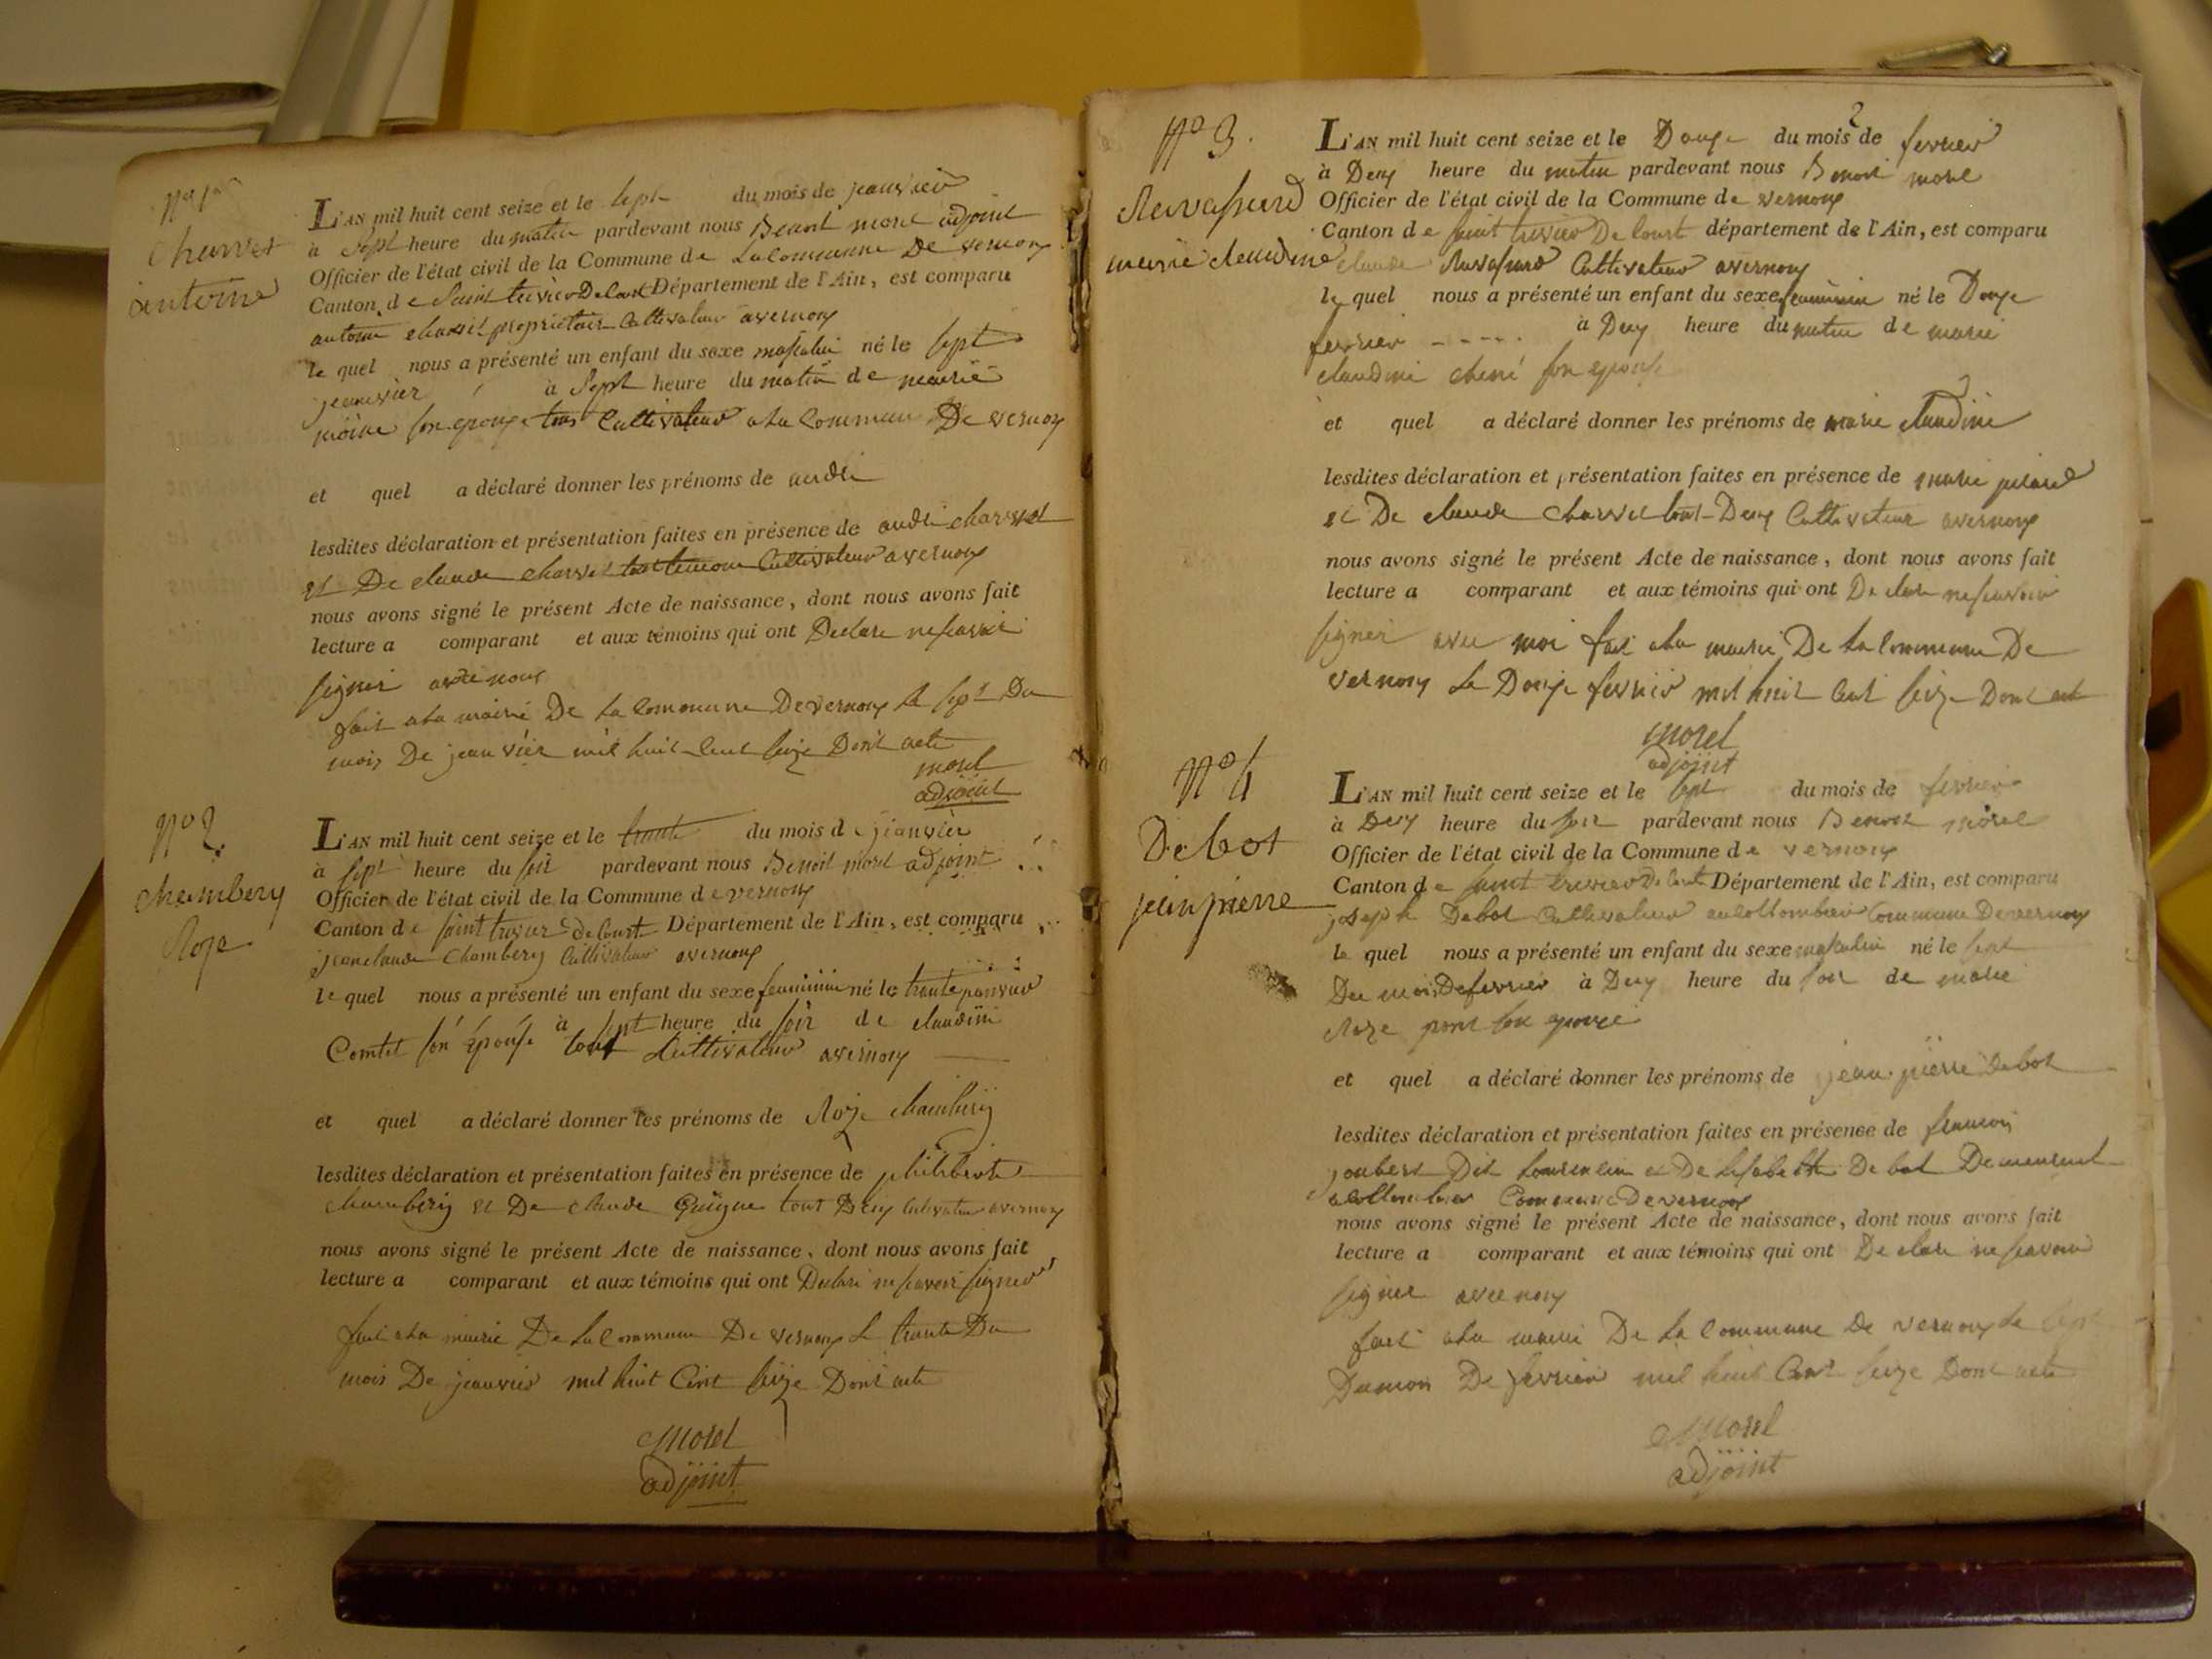 No 1er
Charvet
antoine
L'AN mil huit cent seize et le sept du mois de jeanvier
à Sept heure du matin pardevant nous Benoit morel adjoint
Officier de l'état civil de la Commune de La Commune De vernoux
Canton de Saint trivier De Court Département de l'Ain, est comparu
antoine charvet propriétaire Cultivateur a vernoux
le quel nous a présenté un enfant du sexe masculin né le sept
jeanvier à Sept heure du matin de marie
moine son epouse tous Cultivateur a la Commune De vernoux
et quel a déclaré donner les prénoms de andré
lesdites déclaration et présentation faites en présence de andré charvet
et De claude charvet tout temoin Cultivateur a vernoux
nous avons signé le présent Acte de naissance, dont nous avons fait
lecture a comparant et aux témoins qui ont Declare ne scavoir
signer avec nous
fait a la mairie De La Commune De vernoux le sept Du
mois De jeanvier mil huit Cent seize Dont acte
morel
adjoint
No 2.
chambery
Roze
L'AN mil huit cent seize et le trante du mois de jeanvier
à sept heure du soir pardevant nous Benoit morel adjoint
Officier de l'état civil de la Commune de vernoux
Canton de saint trivier de Court Département de l'Ain, est comparu
jean claude Chambery Cultivateur a vernoux
le quel nous a présenté un enfant du sexe feminin né le trante janvier
à sept heure du soir de claudine
Comtet son épouse tout Cultivateur a vernoux
et quel a déclaré donner les prénoms de Roze chambery
lesdites déclaration et présentation faites en présence de philiberte
chambery et De claude Guigue tout Deux Cultivateur a vernoux
nous avons signé le présent Acte de naissance, dont nous avons fait
lecture a comparant et aux témoins qui ont Declaré ne scavoir signer
fait a la mairie De La Commune De vernoux le trante Du
mois De jeanvier mil huit Cent seize Dont acte
morel
adjoint
2
No 3.
marie claudine
L'AN mil huit cent seize et le Douze du mois de fevrier
à Deux heure du matin pardevant nous Benoit morel
Officier de l'état civil de la Commune de vernoux
Canton de saint trivier De Court département de l'Ain, est comparu
claude Cultivateur a vernoux
le quel nous a présenté un enfant du sexe feminin né le Douze
fevrier à Deux heure du matin de marie
claudine son epouse
et quel a déclaré donner les prénoms de marie claudine
lesdites déclaration et présentation faites en présence de marie
et De claude Charvet tout Deux Cultivateur a vernoux
nous avons signé le présent Acte de naissance, dont nous avons fait
lecture a comparant et aux témoins qui ont De clare ne scavoir
signer avec moi fait a la mairie De La Commune De
vernoux Le Douze fevrier mil huit Cent seize Dont acte
morel
adjoint
No 4
Debot
jean pierre
L'AN mil huit cent seize et le sept du mois de fevrier
à Deux heure du soir pardevant nous Benoit morel
Officier de l'état civil de la Commune de vernoux
Canton de saint trivier De Court Département de l'Ain, est comparu
joseph Debot Cultivateur au Collombier Commune De vernoux
le quel nous a présenté un enfant du sexe masculin né le sept
Du mois De fevrier à Deux heure du soir de marie
Roze son epouze
et quel a déclaré donner les prénoms de jean pierre Debot
lesdites déclaration et présentation faites en présence de francois
joubert Dit et De Debot Demeurant
Commune De vernoux
nous avons signé le présent Acte de naissance, dont nous avons fait
lecture a comparant et aux témoins qui ont De clare ne scavoir
signer avec nous
fait a la mairie De La Commune De vernoux le sept
Du mois De fevrier mil huit Cent seize Dont acte
morel
adjoint